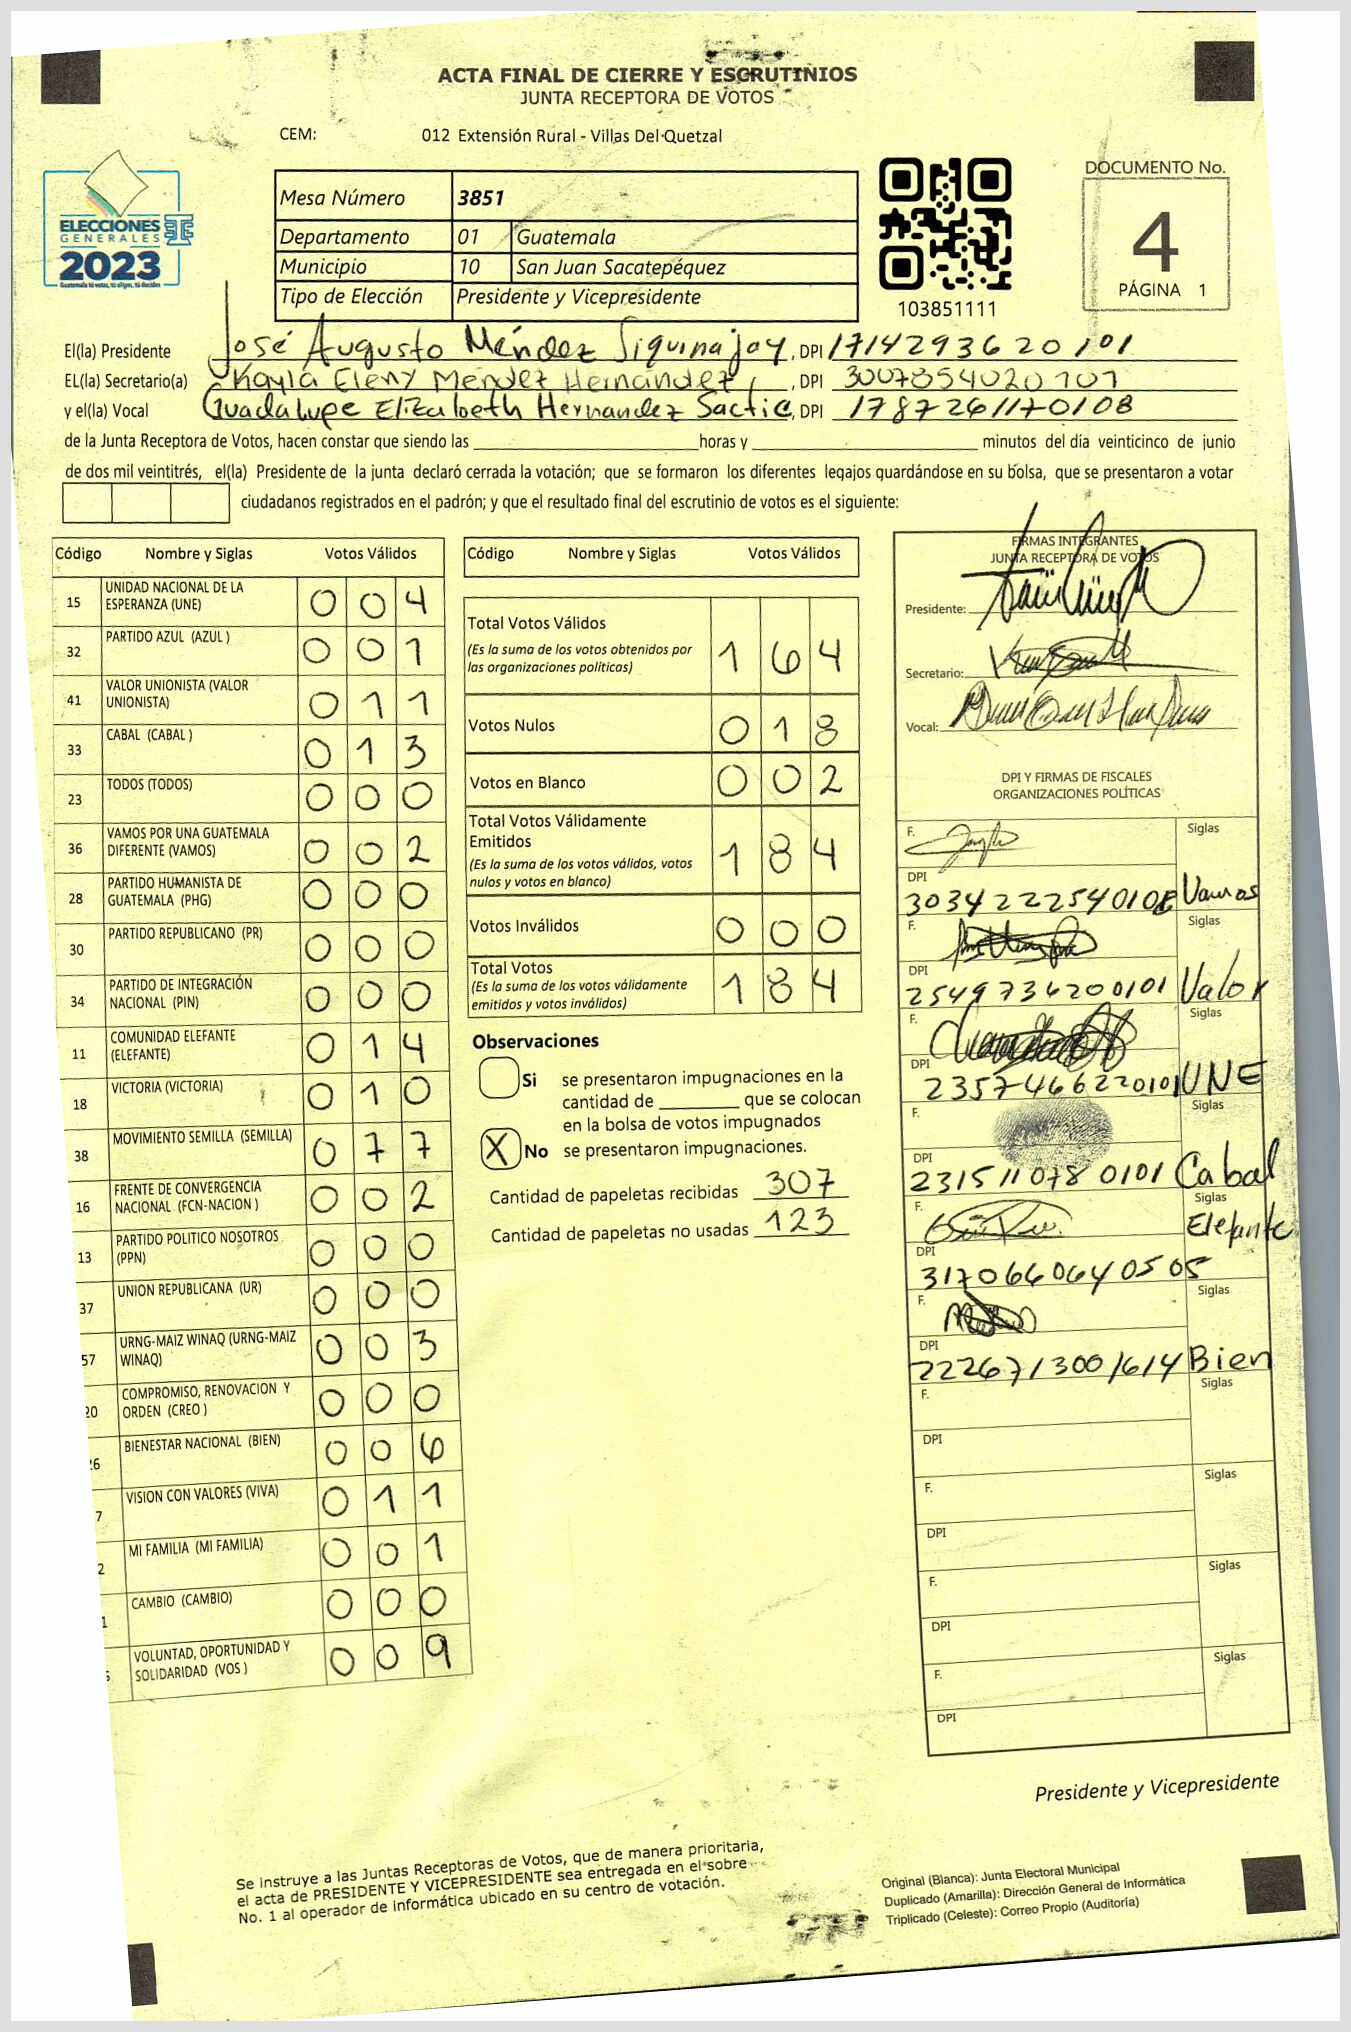 ACTA FINAL DE CIERRE Y ESCRUTINIOS
JUNTA RECEPTORA DE VOTOS
CEM: 012 Extensión Rural - Villas Del Quetzal
ELECCIONES
GENERALES
2023
Guatemala tú votas, tú eliges, tú decides
Mesa Número 3851
Departamento 01 Guatemala
Municipio 10 San Juan Sacatepéquez
Tipo de Elección Presidente y Vicepresidente
103851111
DOCUMENTO No.
4
PÁGINA 1
El(la) Presidente José Augusto Méndez Siquinajay, DPI 1714293620101
EL(la) Secretario(a) Kayla Eleny Méndez Hernández, DPI 3007854020101
y el(la) Vocal Guadalupe Elizabeth Hernandez Sactic, DPI 1787261170108
de la Junta Receptora de Votos, hacen constar que siendo las horas y minutos del día veinticinco de junio
de dos mil veintitrés, el(la) Presidente de la junta declaró cerrada la votación; que se formaron los diferentes legajos guardándose en su bolsa, que se presentaron a votar
ciudadanos registrados en el padrón; y que el resultado final del escrutinio de votos es el siguiente:
Código Nombre y Siglas Votos Válidos
15 UNIDAD NACIONAL DE LA ESPERANZA (UNE) 0 0 4
32 PARTIDO AZUL (AZUL ) 0 0 1
41 VALOR UNIONISTA (VALOR UNIONISTA) 0 1 1
33 CABAL (CABAL ) 0 1 3
23 TODOS (TODOS) 0 0 0
36 VAMOS POR UNA GUATEMALA DIFERENTE (VAMOS) 0 0 2
28 PARTIDO HUMANISTA DE GUATEMALA (PHG) 0 0 0
30 PARTIDO REPUBLICANO (PR) 0 0 0
34 PARTIDO DE INTEGRACIÓN NACIONAL (PIN) 0 0 0
11 COMUNIDAD ELEFANTE (ELEFANTE) 0 1 4
18 VICTORIA (VICTORIA) 0 1 0
38 MOVIMIENTO SEMILLA (SEMILLA) 0 7 7
16 FRENTE DE CONVERGENCIA NACIONAL (FCN-NACION ) 0 0 2
13 PARTIDO POLITICO NOSOTROS (PPN) 0 0 0
37 UNION REPUBLICANA (UR) 0 0 0
57 URNG-MAIZ WINAQ (URNG-MAIZ WINAQ) 0 0 3
20 COMPROMISO, RENOVACION Y ORDEN (CREO ) 0 0 0
26 BIENESTAR NACIONAL (BIEN) 0 0 6
7 VISION CON VALORES (VIVA) 0 1 1
2 MI FAMILIA (MI FAMILIA) 0 0 1
1 CAMBIO (CAMBIO) 0 0 0
VOLUNTAD, OPORTUNIDAD Y SOLIDARIDAD (VOS ) 0 0 9
Código Nombre y Siglas Votos Válidos
Total Votos Válidos
(Es la suma de los votos obtenidos por
las organizaciones políticas) 1 6 4
Votos Nulos 0 1 8
Votos en Blanco 0 0 2
Total Votos Válidamente
Emitidos
(Es la suma de los votos válidos, votos
nulos y votos en blanco) 1 8 4
Votos Inválidos 0 0 0
Total Votos
(Es la suma de los votos válidamente
emitidos y votos inválidos) 1 8 4
Observaciones
Si se presentaron impugnaciones en la
cantidad de que se colocan
en la bolsa de votos impugnados
X No se presentaron impugnaciones.
Cantidad de papeletas recibidas 307
Cantidad de papeletas no usadas 123
FIRMAS INTEGRANTES
JUNTA RECEPTORA DE VOTOS
Presidente:
Secretario:
Vocal:
DPI Y FIRMAS DE FISCALES
ORGANIZACIONES POLÍTICAS
F. Siglas
DPI
3034222540108 Vamos
F. Siglas
DPI
2549736200101 Valor
F. Siglas
DPI
2357466220101 UNE
F. Siglas
DPI
2315110780101 Cabal
F. Siglas
Elefante
DPI
3170660640505
F. Siglas
DPI
2226713001614 Bien
F. Siglas
DPI
F. Siglas
DPI
F. Siglas
DPI
F. Siglas
DPI
Presidente y Vicepresidente
Se instruye a las Juntas Receptoras de Votos, que de manera prioritaria,
el acta de PRESIDENTE Y VICEPRESIDENTE sea entregada en el sobre
No. 1 al operador de informática ubicado en su centro de votación.
Original (Blanca): Junta Electoral Municipal
Duplicado (Amarilla): Dirección General de Informática
Triplicado (Celeste): Correo Propio (Auditoría)